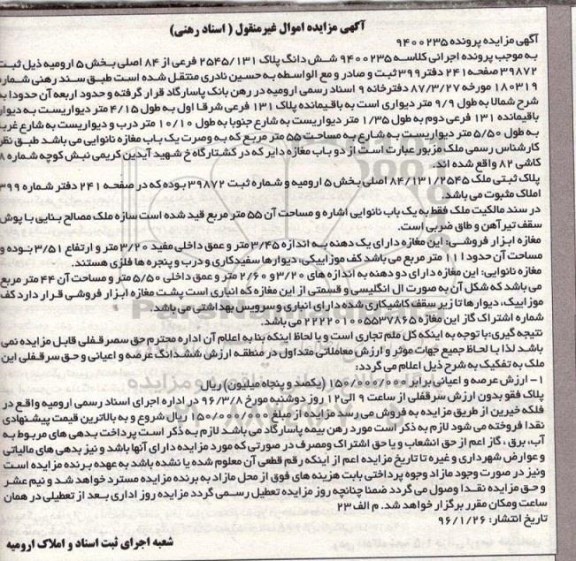 آگهی مزایده اموال غیرمنقول ( اسناد رهنی)
آگهی مزایده پرونده ۹۴۰۰۲۳۵
به موجب پرونده اجرائی کلاسه ۹۴۰۰۲۳۵ شش دانگ پلاک ۲۵۴۵/۱۳۱ فرعی از ۸۴ اصلی بخش ۵ ارومیه ذیل ثبت
۳۹۸۷۲ صفحه ۲۴۱ دفتر ۳۹۹ ثبت و صادر و مع الواسطه به حسین نادری منتقل شده است طبق سند رهنی شماره
۱۸۰۳۱۹ مورخه ۸۷/۳/۲۷ دفترخانه ۹ اسناد رسمی ارومیه در رهن بانک پاسارگاد قرار گرفته و حدود اربعه آن حدودا به
شرح شمالا به طول ۹/۹ متر دیواری است به باقیمانده پلاک ۱۳۱ فرعی شرقا اول به طول ۴/۱۵ متر دیواریست به دیوار
باقیمانده ۱۳۱ فرعی دوم به طول ۱/۳۵ متر دیواریست به شارع جنوبا به طول ۱۰/۱۰ متر درب و دیواریست به شارع غربا
به طول ۵/۵۰ متر دیواریست به شارع به مساحت ۵۵ متر مربع که به وصرت یک باب مغازه نانوایی می باشد طبق نظر
کارشناس رسمی ملک مزبور عبارت است از دو باب مغازه دایر که در کشتارگاه خ شهید آیدین کریمی نبش کوچه شماره ۸
کاشی ۸۲ واقع شده اند
پلاک ثبتی ملک ۸۴/۱۳۱/۲۵۴۵ اصلی بخش ۵ ارومیه و شماره ثبت ۳۹۸۷۲ بوده که در صفحه ۲۴۱ دفتر شماره ۳۹۹
املاک مثبوت می باشد
در سند مالکیت ملک فقط به یک باب نانوایی اشاره و مساحت آن ۵۵ متر مربع قید شده است سازه ملک مصالح بنایی با پوشش
سقف تیرآهن و طاق ضربی است.
مغازه ابزار فروشی: این مغازه دارای یک دهنه به اندازه ۳/۴۵ متر و عمق داخلی مفید ۳/۲۰ متر و ارتفاع ۳/۵۱ بوده و
مساحت آن حدود ۱۱ متر مربع می باشد کف موزاییکی، دیوارها سفیدکاری و درب و پنجره ها فلزی هستند.
مغازه نانوایی: این مغازه دارای دو دهنه به اندازه های ۳/۲۰ و ۲/۶۰ متر و عمق داخلی ۵/۵۰ متر و مساحت آن ۴۴ متر مربع
می باشد که شکل آن به صورت ال انگلیسی و قسمتی از این مغازه که انباری است پشت مغازه ابزار فروشی قرار دارد کف
موزاییک، دیوارها تا زیر سقف کاشیکاری شده دارای انباری و سرویس بهداشتی می باشد
شماره اشتراک گاز این مغازه ۲۲۲۲۰۱۰۰۵۵۳۷۸۶۵ می باشد.
نتیجه گیری: با توجه به اینکه کل ملم تجاری است و با لحاظ اینکه بنا به اعلام آن اداره محترم حق سرقفلی قابل مزایده نمی
باشد لذا با لحاظ جمیع جهات موثر و ارزش معاملاتی متداول در منطقه ارزش ششدانگ عرصه و اعیانی و حق سرقفلی این
ملک به تفکیک به شرح ذیل اعلام می گردد:
۱- ارزش عرصه و اعیانی برابر ۱۵۰/۰۰۰/۰۰۰ (یکصد و پنجاه میلیون) ریال
پلاک فقو بدون ارزش سرقفلی از ساعت ۹ الی ۱۲ روز دوشنبه مورخ ۹۶/۳/۸ در اداره اجرای اسناد رسمی ارومیه واقع در
فلکه خیرین از طریق مزایده به فروش می رسد مزایده از مبلغ ۱۵۰/۰۰۰/۰۰۰ ریال شروع و به بالاترین قیمت پیشنهادی
نقدا فروخته می شود لازم به ذکر است مورد رهن بیمه پاسارگاد می باشد لازم به ذکر است پرداخت بدهی های مربوط به
آب، برق، گاز اعم از حق انشعاب و یا حق اشتراک ومصرف در صورتی که مورد مزایده دارای آنها باشد و نیز بدهی های مالیاتی
و عوارض شهرداری و غیره تا تاریخ مزایده اعم از اینکه رقم قطعی آن معلوم شده یا نشده باشد به عهده برنده مزایده است
ونیز در صورت وجود مازاد وجوه پرداختی بابت هزینه های فوق از محل مازاد به برنده مزایده مسترد خواهد شد و نیم عشر
و حق مزایده نقدا وصول می گردد ضمنا چنانچه روز مزایده تعطیل رسمی گردد مزایده روز اداری بعد از تعطیلی در همان
ساعت ومکان مقرر برگزار خواهد شد. م الف ۲۳
تاریخ انتشار: ۹۶/۱/۲۶
شعبه اجرای ثبت اسناد و املاک ارومیه